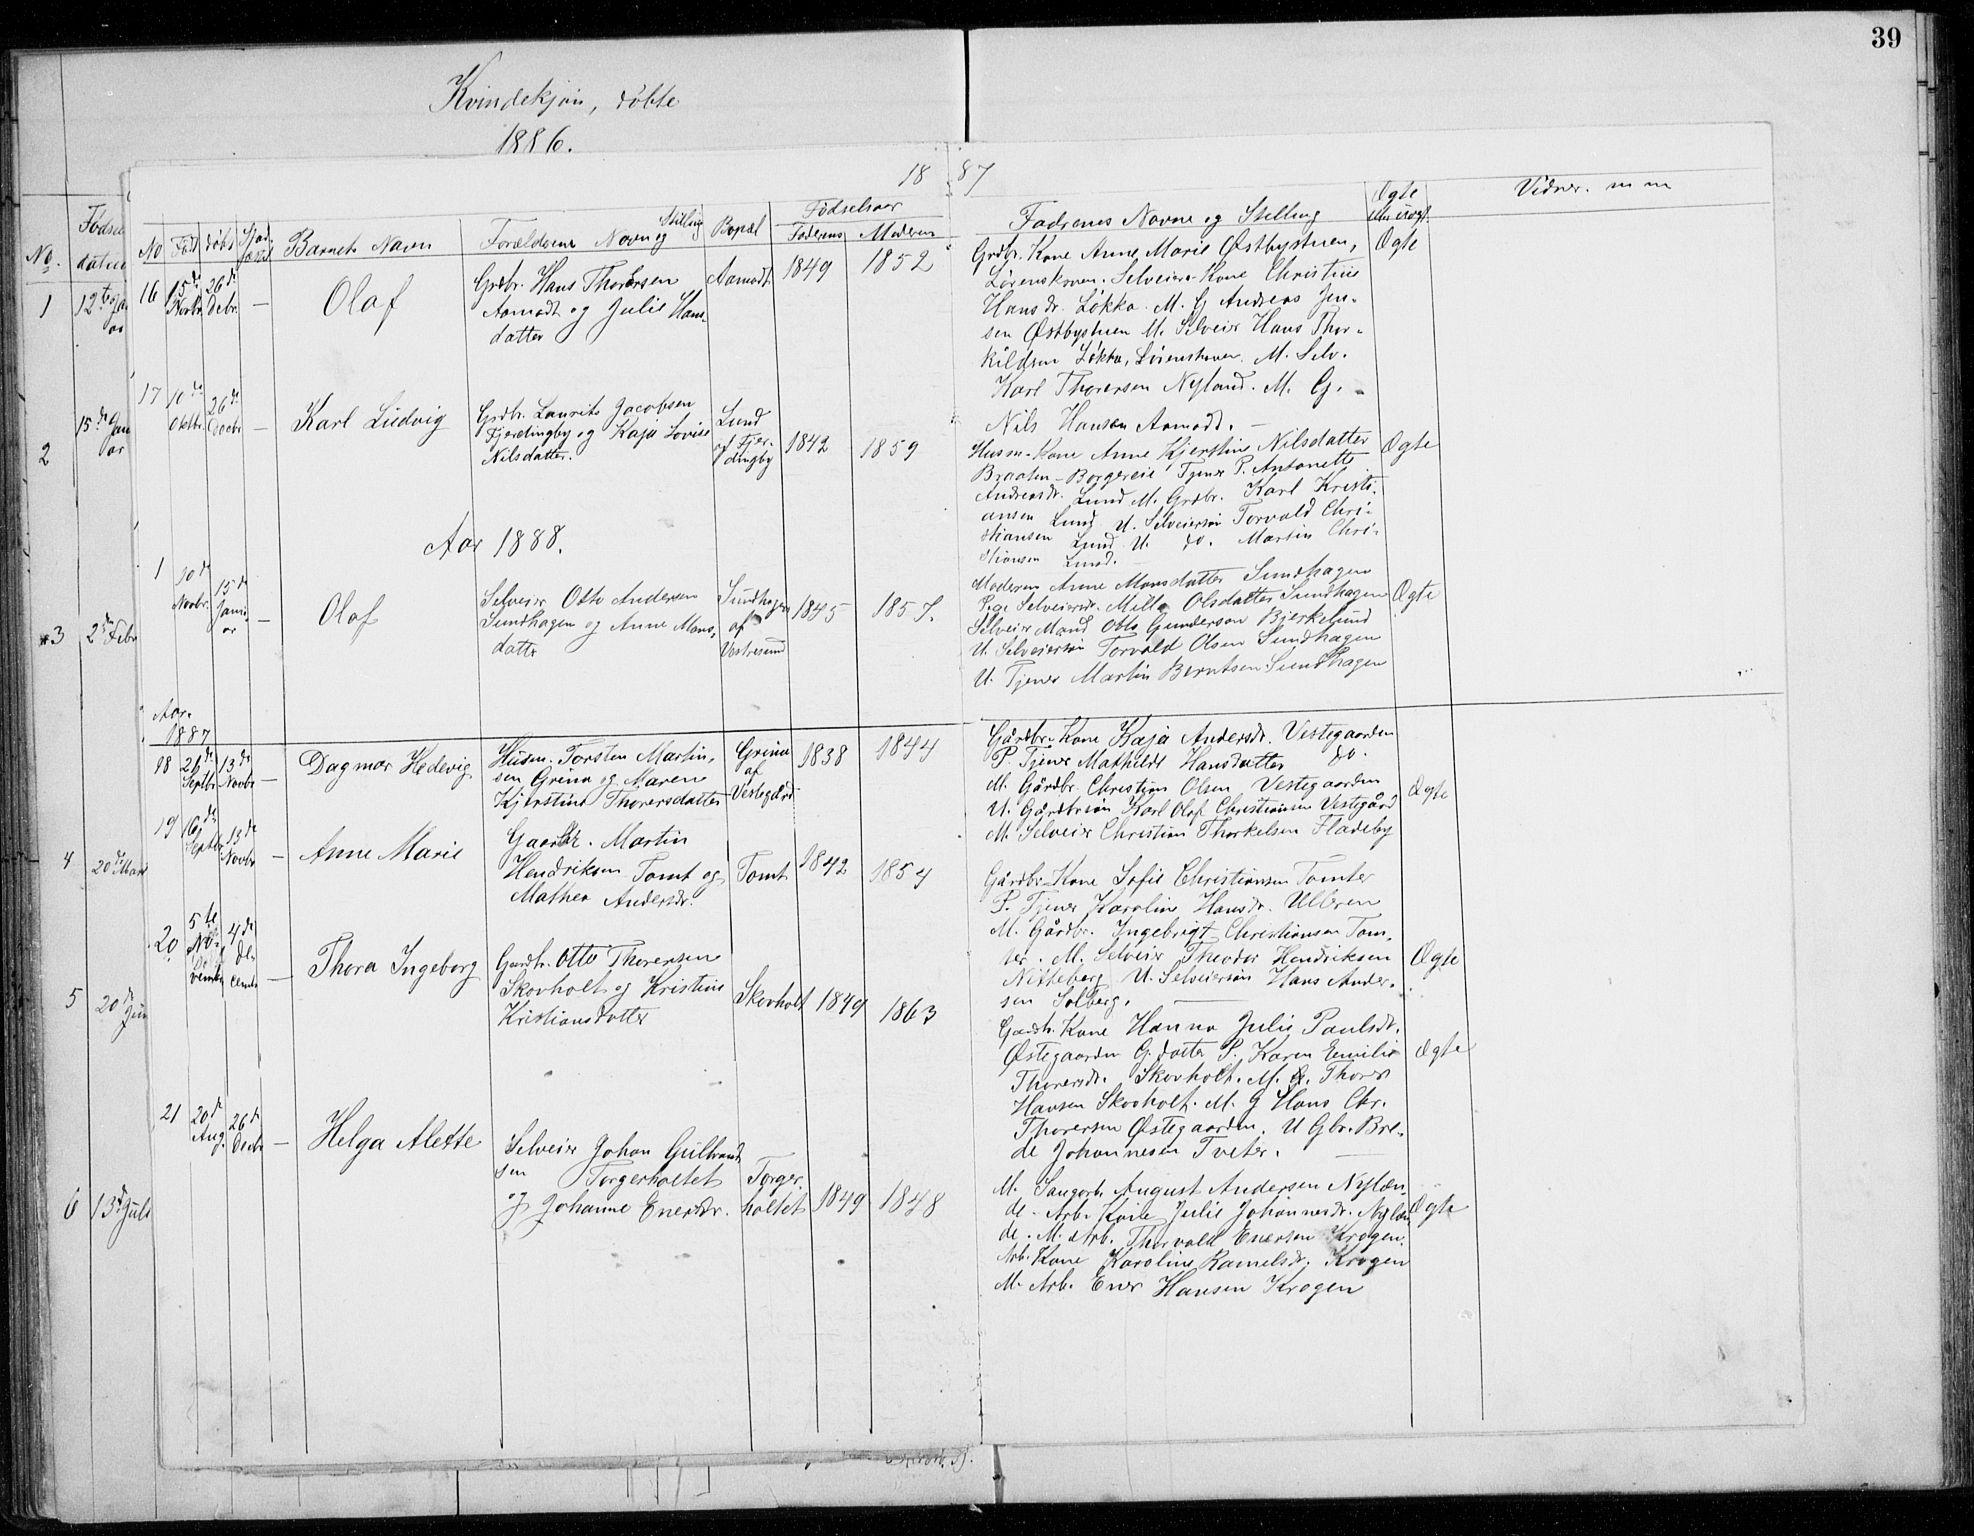 39
Kvindekjön, döbte
1886.
18 87
No. Födsels datum
No Född döbt Barnets Navn Forældrene Navn og Stilling Bopæl Födselsaar Faderens Moderen Fadrenes Navne og Stelling Ægte Vidner. m m
1 12te Jan
uar
2 15de Jan
uar
3 2den Febr
4 20de Mars
5 20de Jun
6 13de Juli
16 15de Novbr. 26de Debr. — Olaf
Grdbr. Hans Thorersen
Aamodt og Julie Hans-
datter
Aamodt. 1849 1852
Grdbr. Kone Anne Marie Østbystuen,
Lörenskoven. Selveier-Kone Christine
Hansdr. Løkka. M. G Andreas Jen-
sen Østbystuen M. Selveier Hans Thor-
kildsen Løkka, Lörenskoven. M. Selv.
Karl Thorersen Nyland. M. G.
Nils Hansen Aamodt. —
Ægte
17 10de Oktbr. 26de Decbr — Karl Ludvig
Grdbr. Laurits Jacobsen
Fjerdingby og Kaja Lovise
Nilsdatter.
Lund
af Fjer-
dingby
1842 1859
Husm.-Kone Anne Kjerstine Nilsdatter
Braaten - Borgereie Tjener P. Antonette
Andreasdr. Lund M. Grdbr. Karl Kristi-
ansen Lund U. Selveiersön Torvald Chri-
stiansen Lund U. do. Martin Chri-
stiansen Lund. —
Ægte
Aar 1888.
1 10de Novbr. 15de Janu-
ar — Olaf
Selveier Otto Andersen
Sundhagen og Anne Mons-
datter
Sundhagen
af
Vestresund
1845 1857.
Moderen Anne Monsdatter Sundhagen
Pige Selveiersdr. Milla Olsdatter Sundhagen
Selveier Mand Otto Gundersen Bjerkelund
U. Selveiersön Torvald Olsen Sundhagen
U. Tjener Martin Berntsen Sundhagen
Ægte
Aar.
1887
18 21de Septbr. 13de Novbr — Dagmar Hedevig
Husm. Torsten Martin-
sen Grina og Maren
Kjerstine Thorersdatter
Grina
af
Vestegård
1838 1844
Gårdbr.-Kone Kaja Andersdr. Vestegaarden
P. Tjener Mathilde Hansdatter do.
M. Gårdbr. Christian Olsen Vestegaarden
U. Gårdbrsön Karl Olaf Christiansen Vestegård
M. Selveier Christian Thorkelsen Fladeby
Ægte
19 16de Septbr 13de Novbr — Anne Marie
Gaardbr. Martin
Hendriksen Tomt og
Mathea Andersdr.
Tomt 1842 1854
Gårdbr-Kone Sofie Christiansen Tomter
P. Tjener Karoline Hansdr. Ulleren
M. Gårdbr. Ingebrigt Christiansen Tom-
ter. M. Selveier Theodor Hendriksen
Nitteberg U. Selveiersön Hans Ander-
sen Solberg. —
Ægte
20 5te No-
vember 4de De-
cemb — Thora Ingeborg
Gardb. Otto Thorersen
Skovholt og Kristine
Kristiansdatter
Skovholt 1849 1863
Gardb. Kone Hanna Julie Paulsdr.
Østegaarden G. datter P. Karen Emilie
Thorersdr. Skovholt. M. G. Thorer
Hansen Skovholt. M. G Hans Chr.
Thorersen Østegaarden. U Gbr. Bre-
de Johannesen Tveter. —
Ægte
21 20de Aug. 26de Decbr — Helga Alette
Selveier Johan Gulbrand-
sen Torgerholtet
og Johanne Enersdr.
Torger-
holtet
1849 1848
M. Saugarb. August Andersen Nylæn-
de. Arb. Kone Julie Johannesdr. Nylæn-
de. M. Arb. Thorvald Enersen Krogen.
Arb. Kone Karoline Ramelsdr. Krogen
M. Arb. Ener Hansen Krogen
Ægte